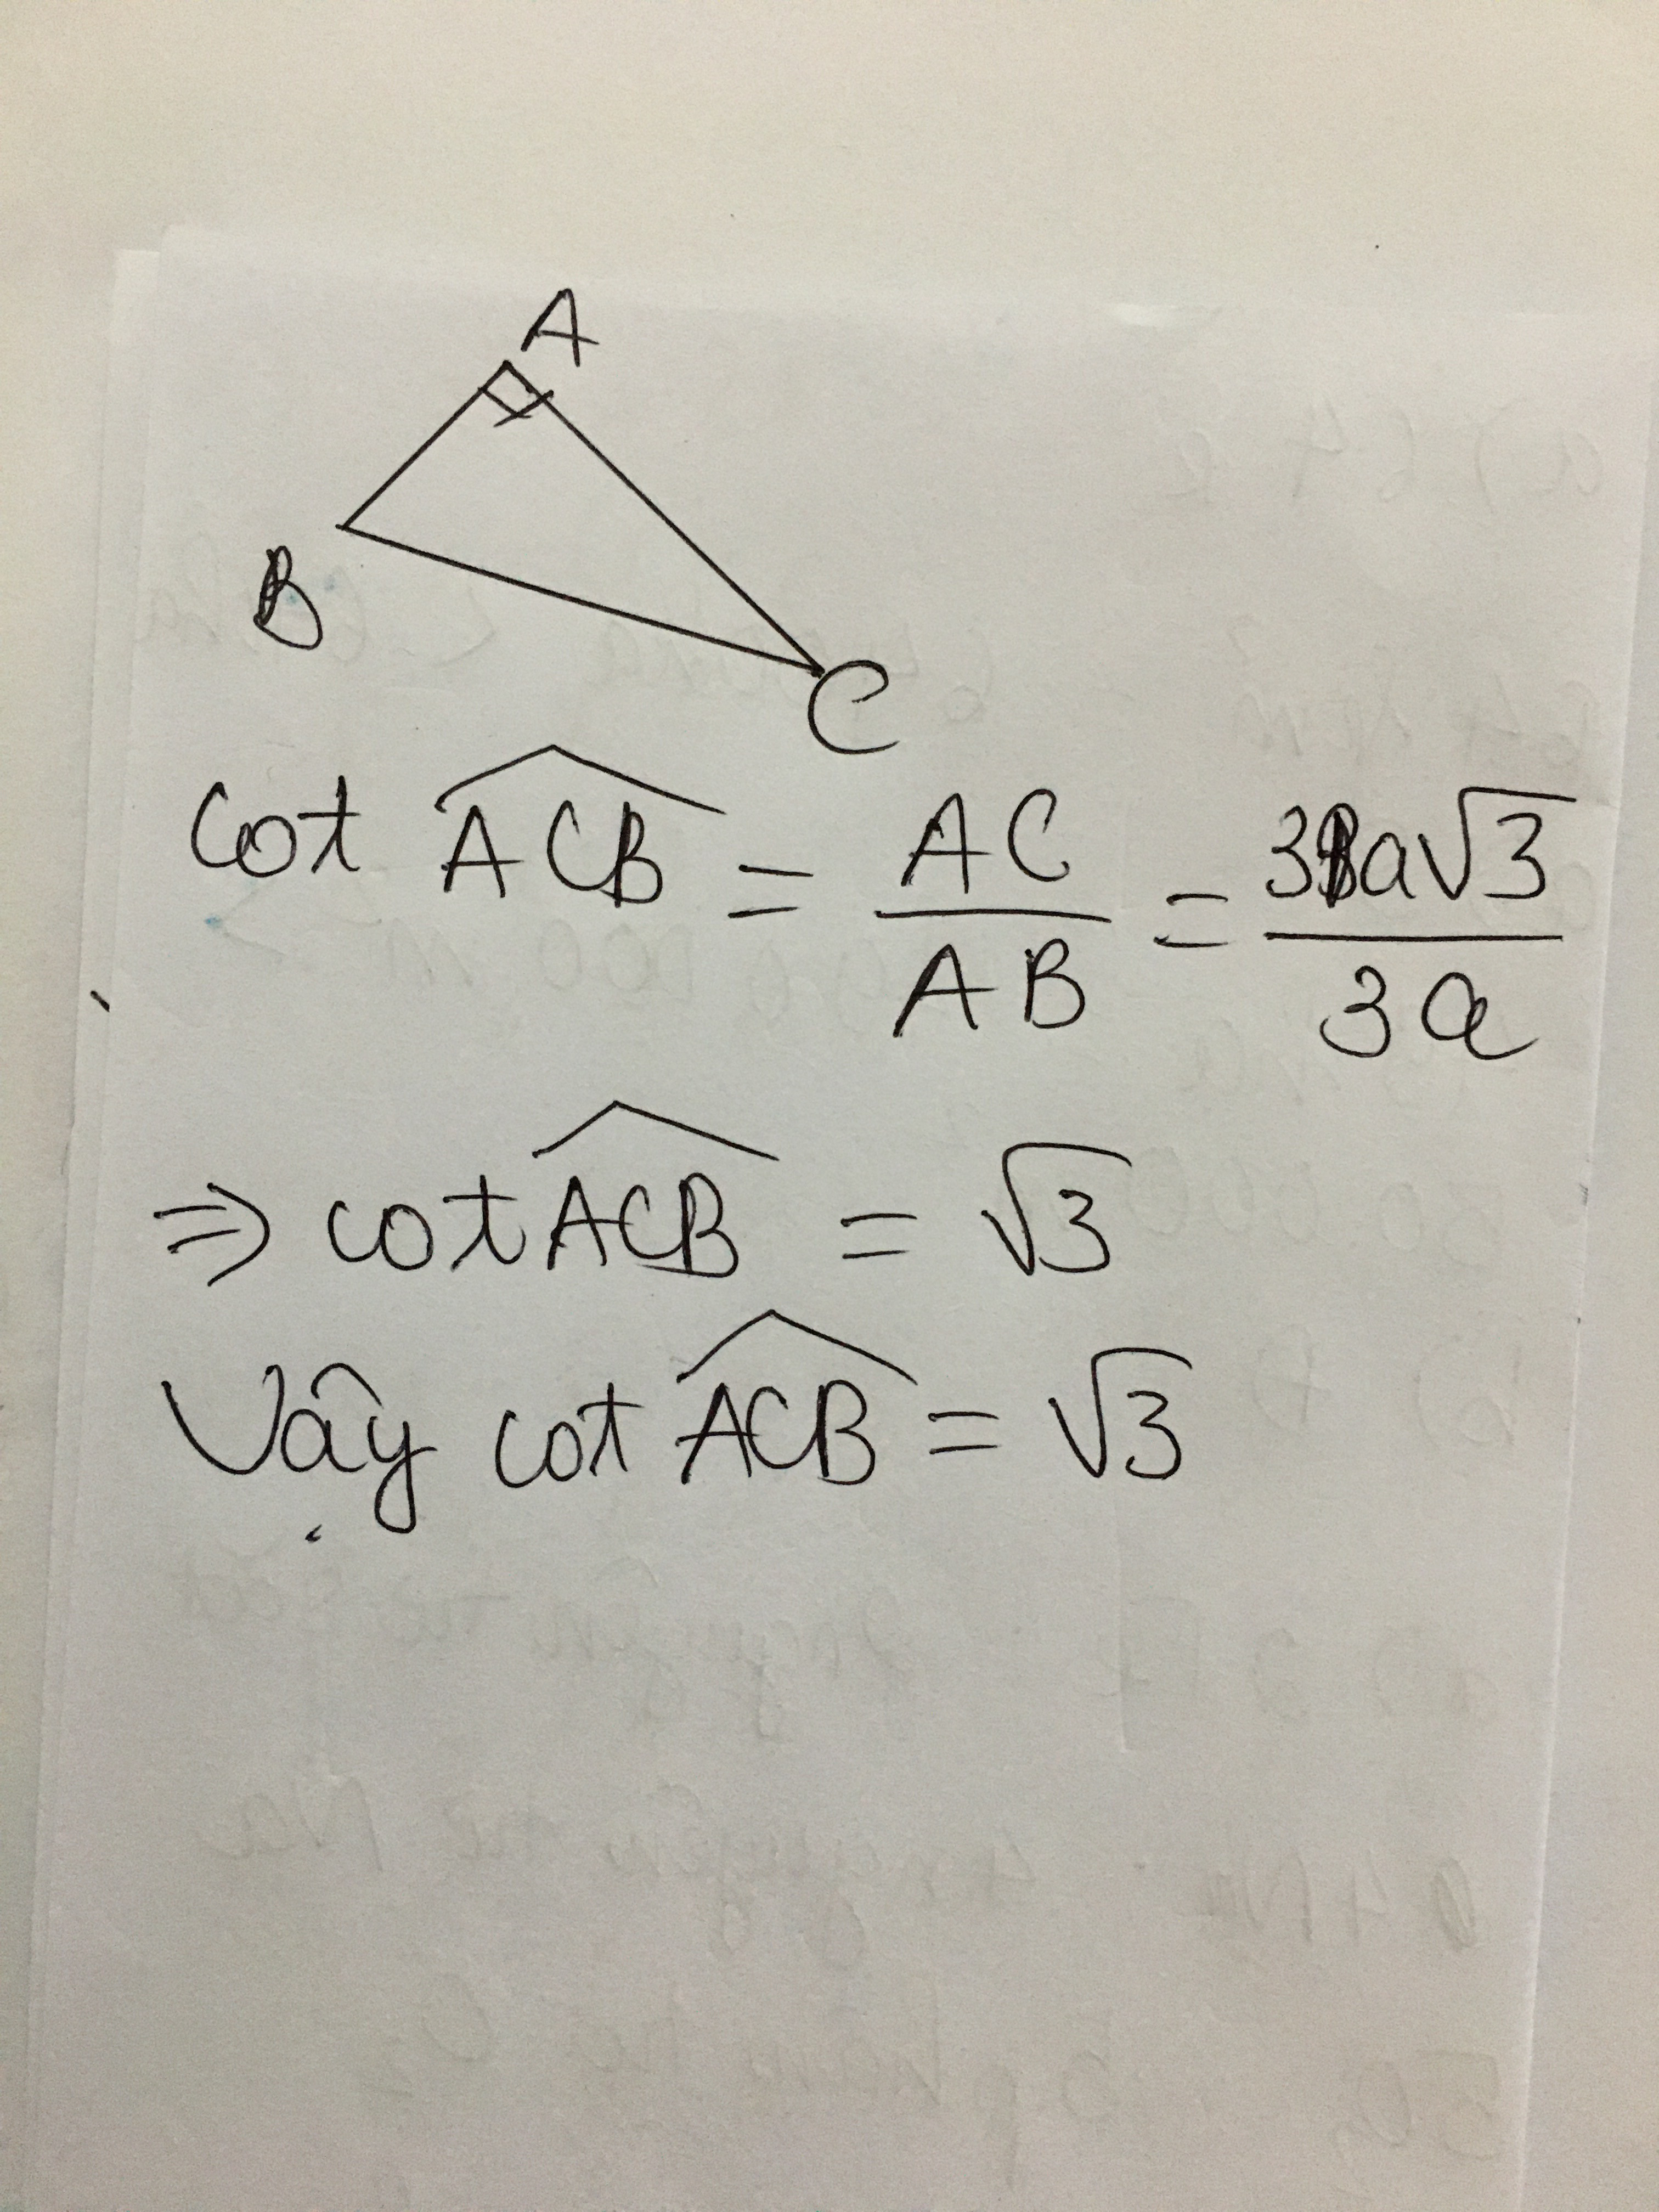 A
B
C
cot ACB = AC / AB = 3a√3 / 3a
⇒ cot ACB = √3
Vậy cot ACB = √3